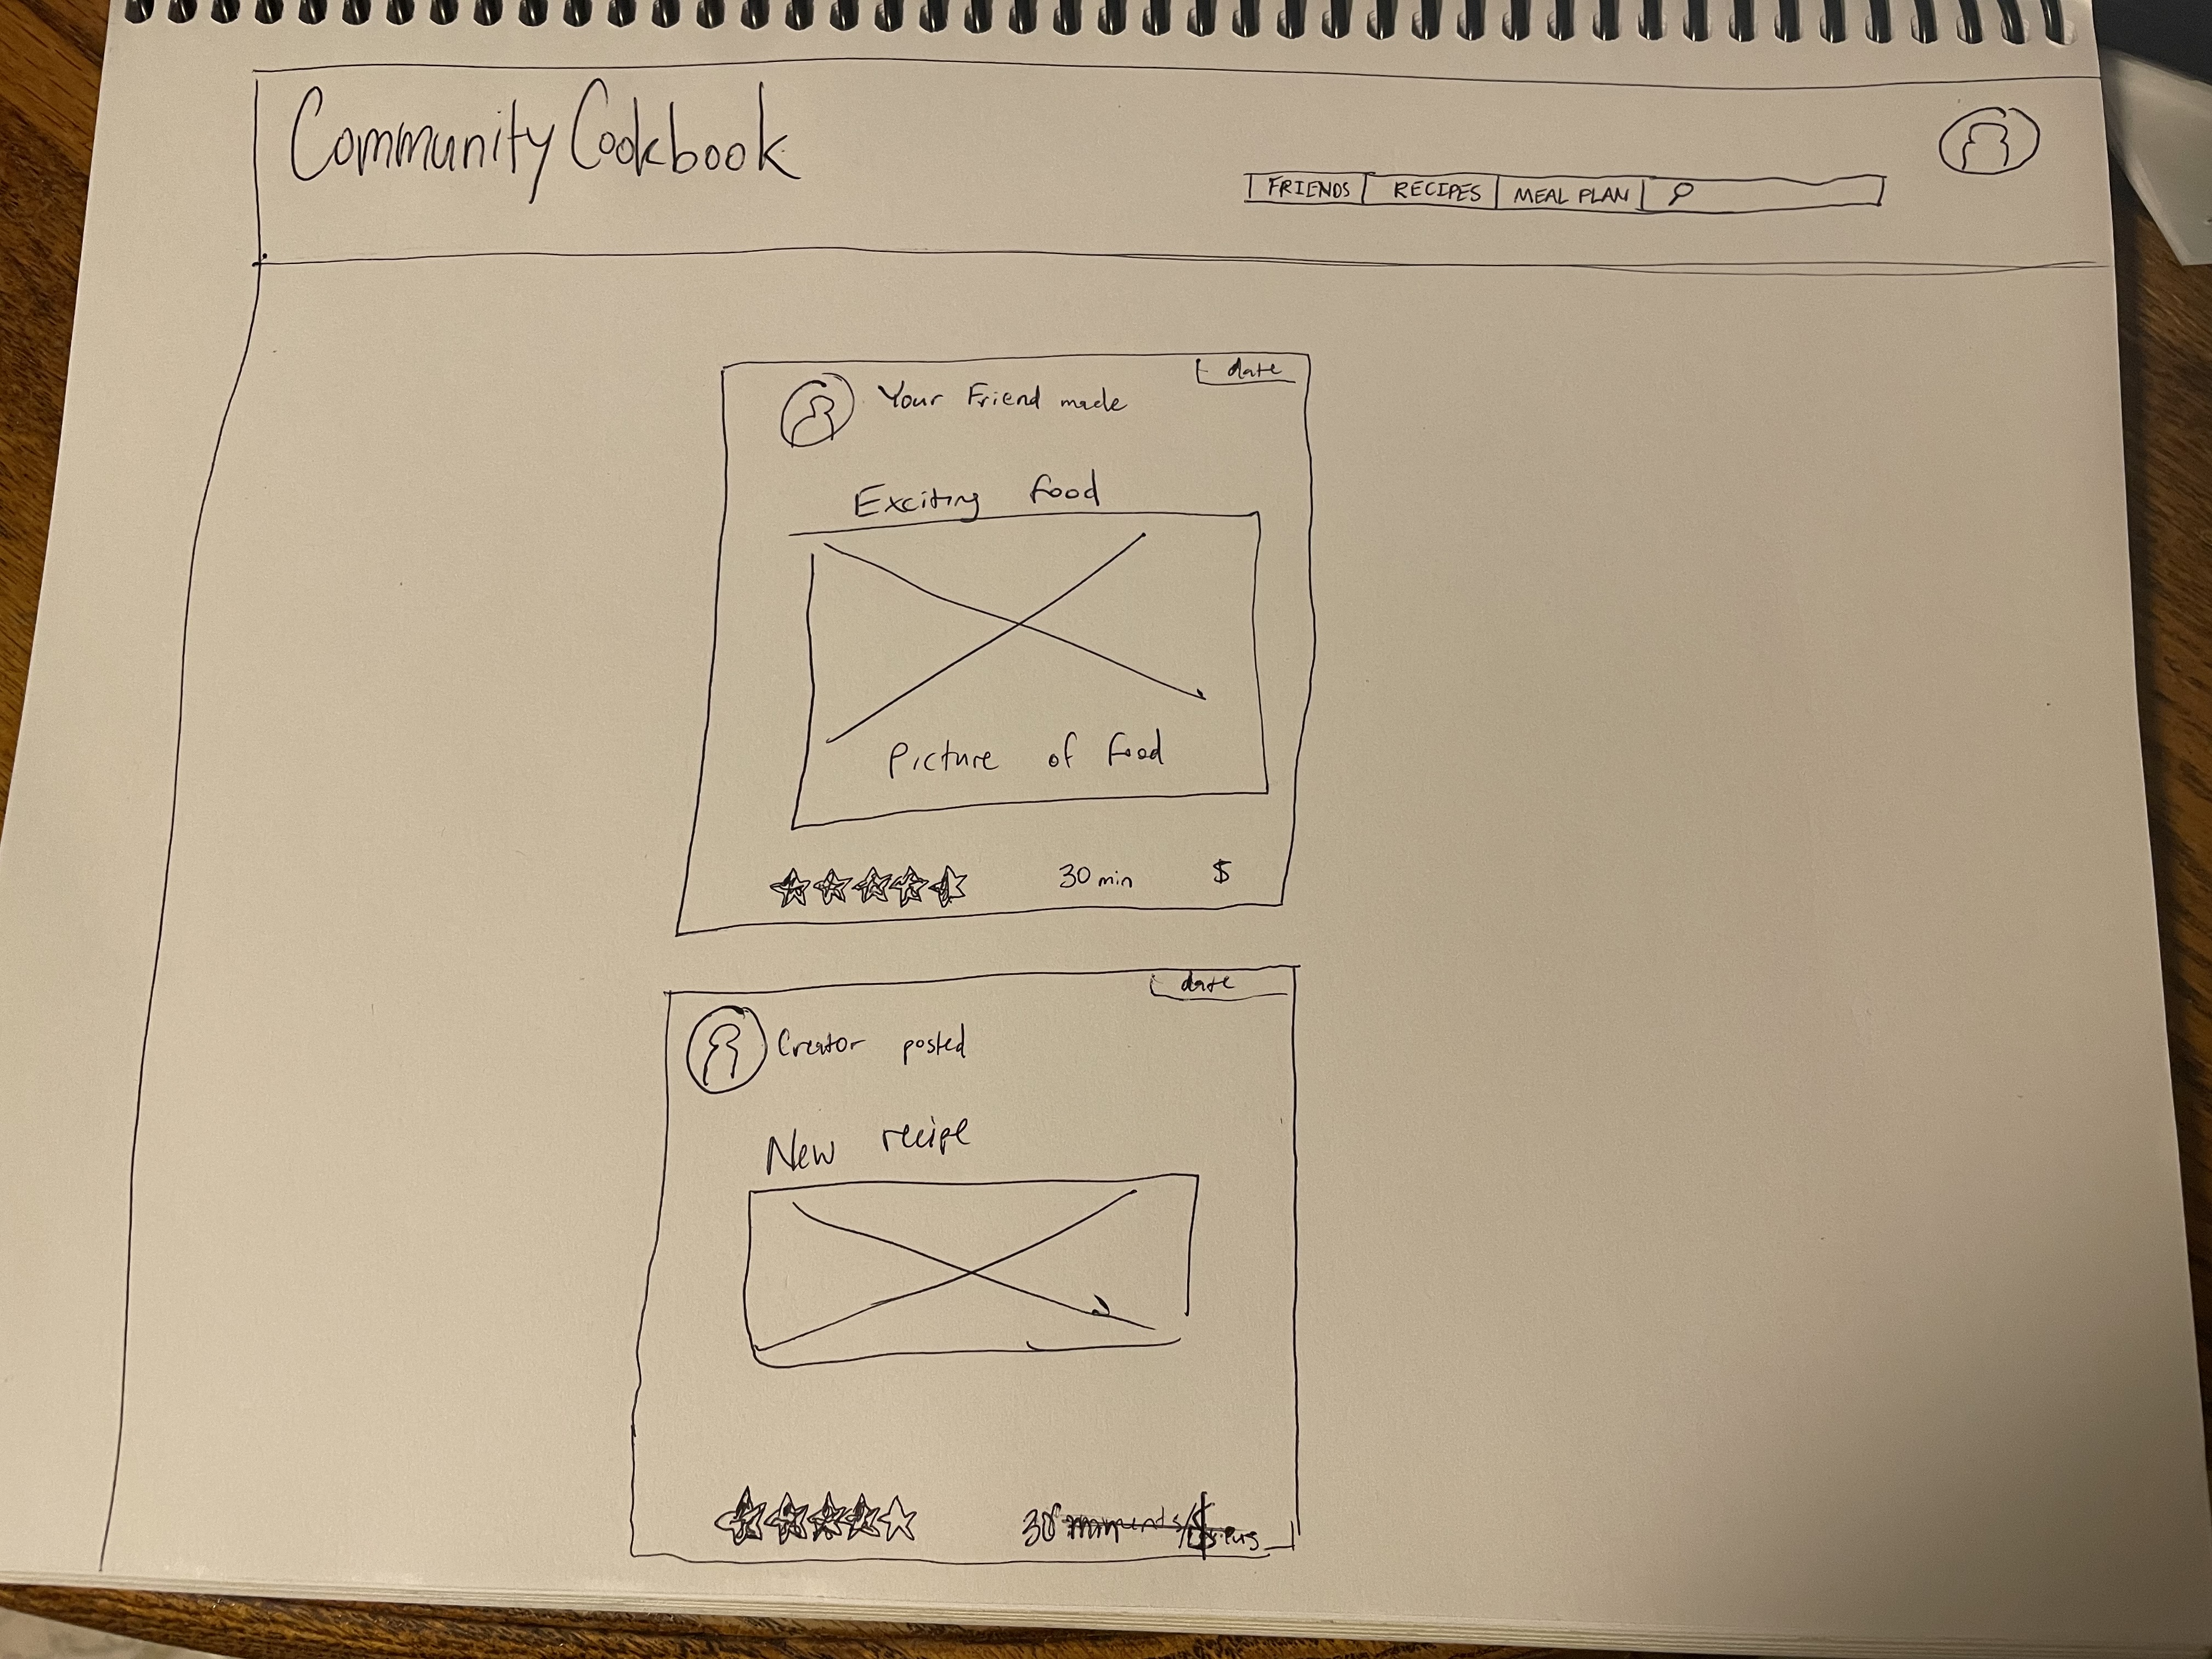 Community Cookbook
FRIENDS RECIPES MEAL PLAN
date
Your Friend made
Exciting food
Picture of food
30 min $
date
Creator posted
New recipe
30 $